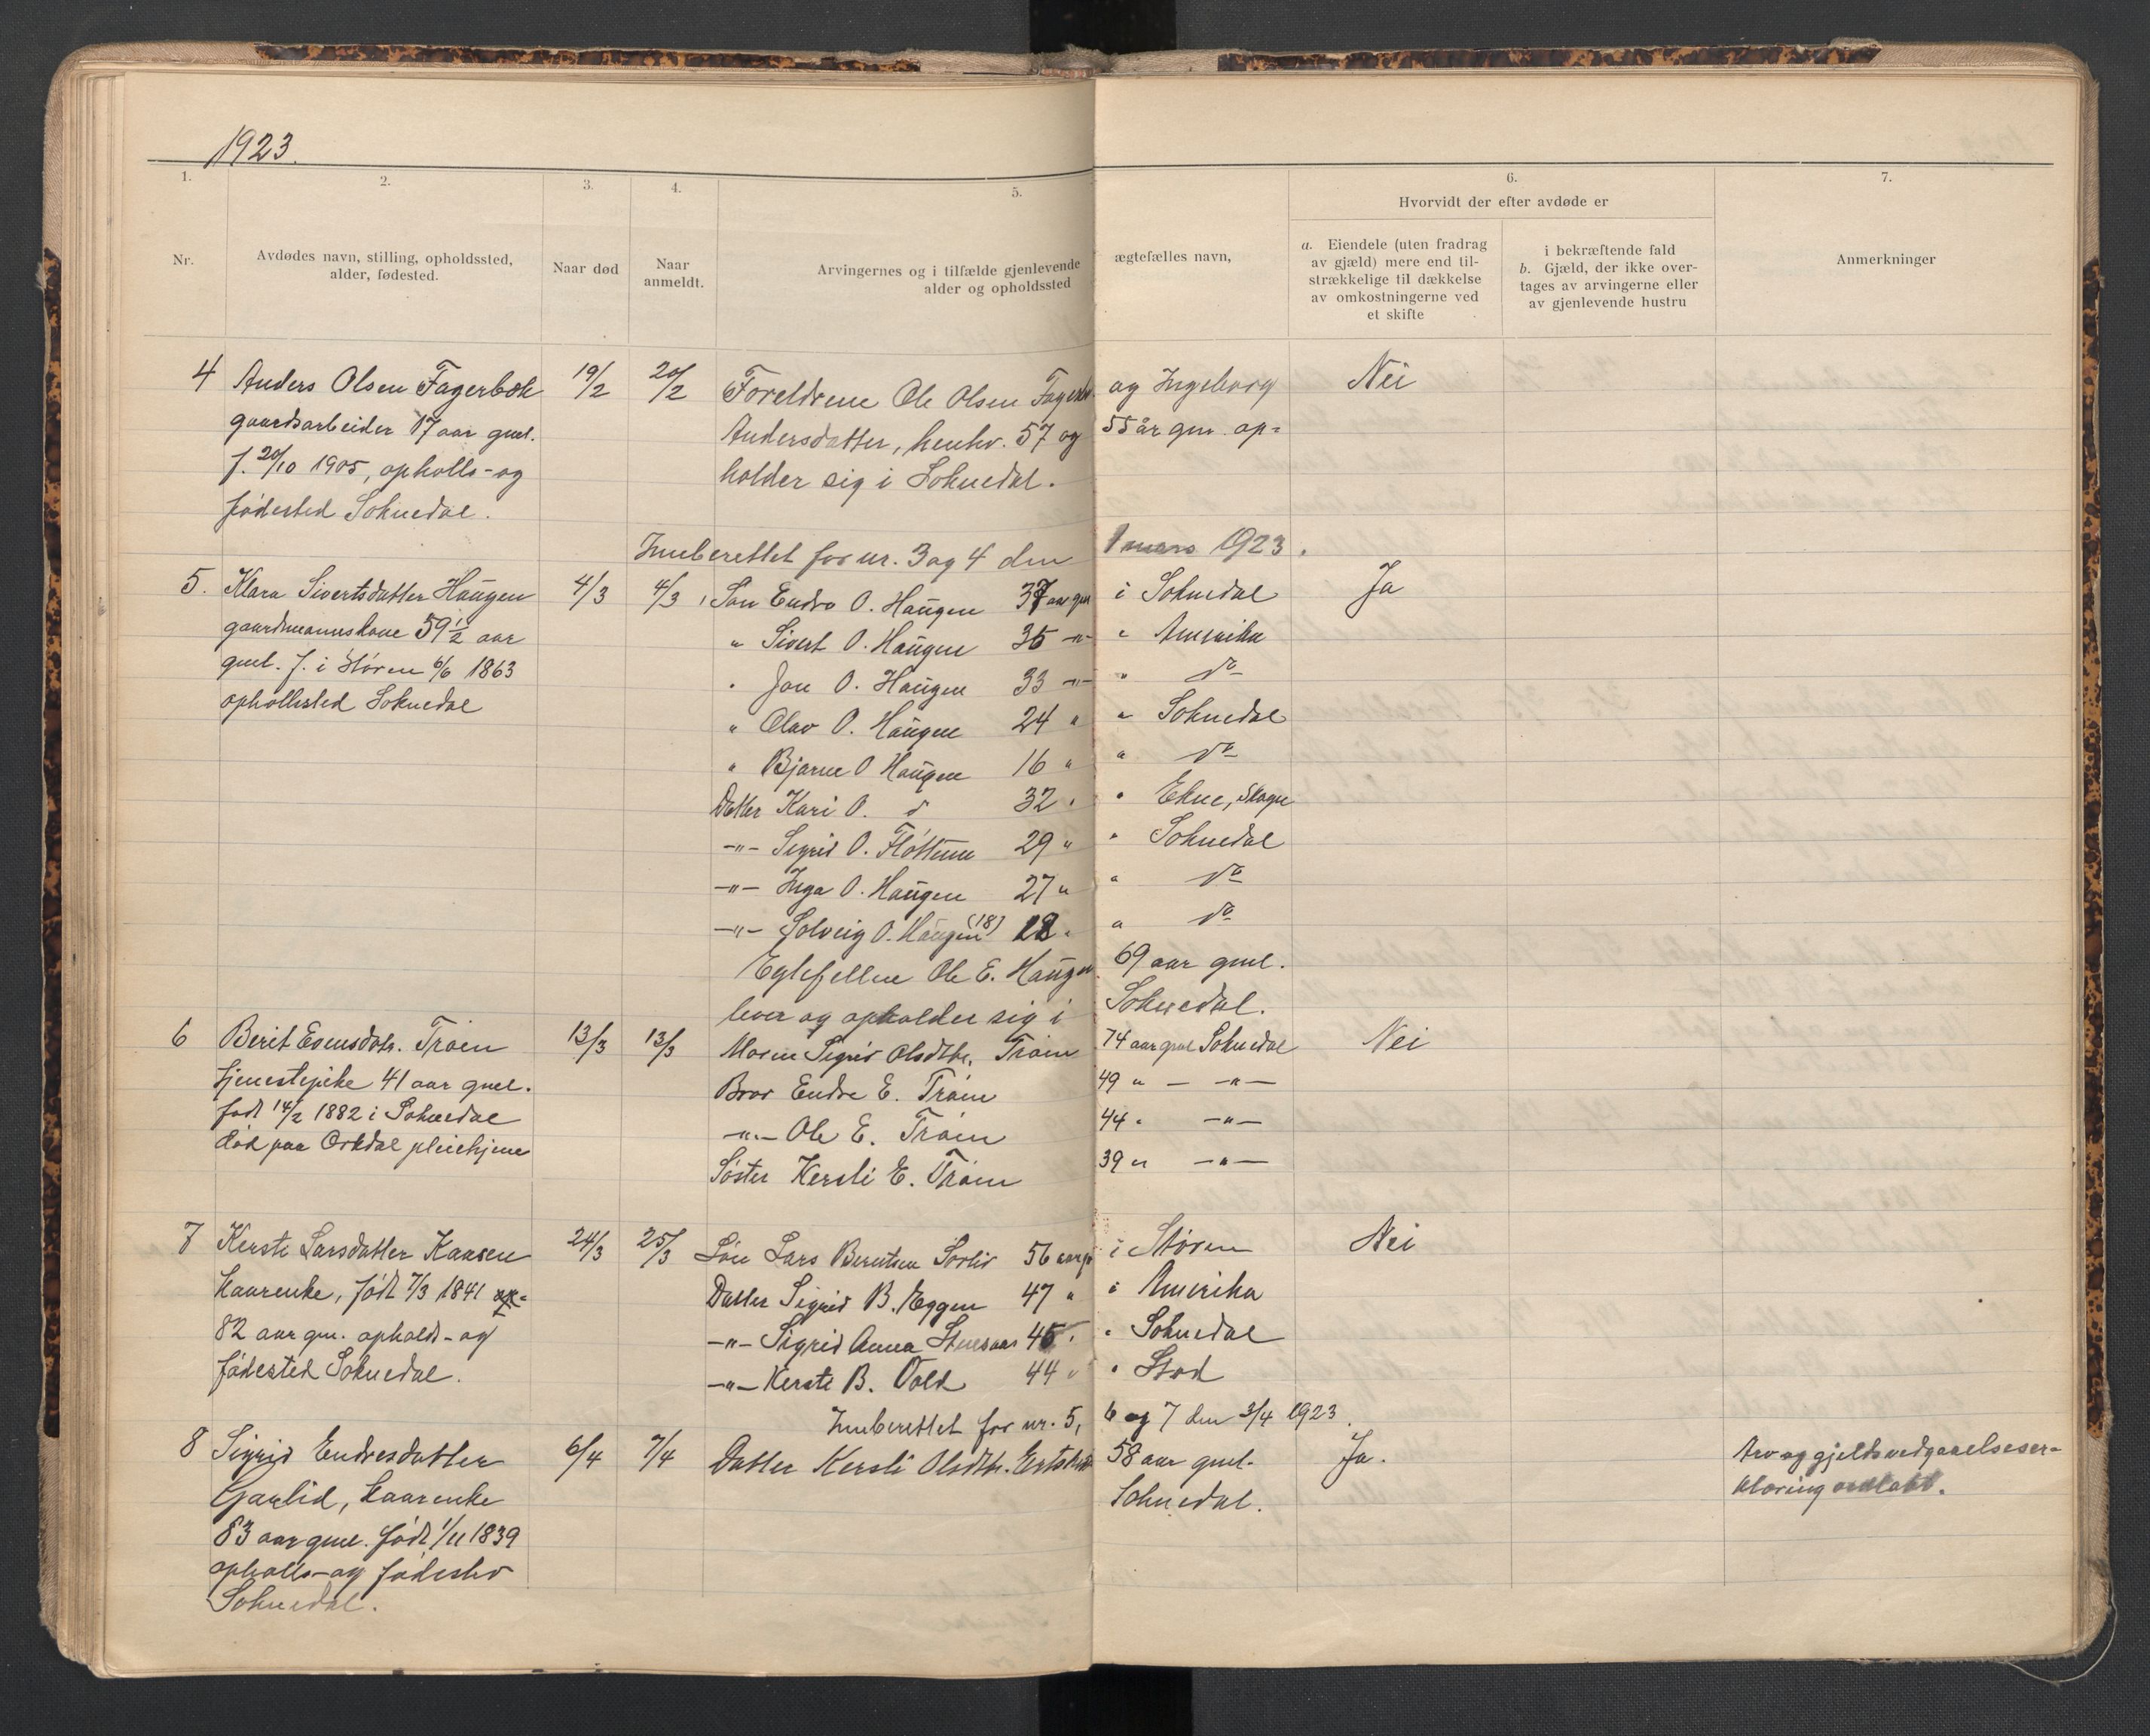 1923.
1.
2.
3.
4.
5.
6.
7.
Nr.
Avdødes navn, stilling, opholdssted,
alder, fødested.
Naar død
Naar
anmeldt.
Arvingernes og i tilfælde gjenlevende ægtefælles navn,
alder og opholdssted
Hvorvidt der efter avdøde er
a. Eiendele (uten fradrag
av gjæld) mere end til-
strækkelige til dækkelse
av omkostningerne ved
et skifte
i bekræftende fald
b. Gjæld, der ikke over-
tages av arvingerne eller
av gjenlevende hustru
Anmerkninger
4 Anders Olsen Fagerbæk
gaardsarbeider 17 aar gml.
f. 20/10 1905, opholls- og
fødested Soknedal.
19/2
20/2
Foreldrene Ole Olsen og Ingeborg
Andersdatter, henhv. 57 og 55 år gm. op-
holder sig i Soknedal.
Nei
Innberettet for nr. 3 og 4 den 1 mars 1923.
5. Klara Sivertsdatter Haugen
gaardmannskone 59½ aar
gml. f. i Støren 6/6 1863
ophollssted Soknedal
4/3
4/3
Søn Endre O. Haugen 37 aar gml i Soknedal
" Sivert O. Haugen 35 -"- " Amerika
" Jon O. Haugen 33 -"- " do
" Olav O. Haugen 24 " " Soknedal
" Bjarne O Haugen 16 " " do
Datter Kari O. d 32 " " Ekne, Skogn
-"- Sigrid O. Fløttum 29 " " Soknedal
-"- Inga O. Haugen 27 " " do
-"- Solveig O. Haugen (18) 18 " " do
Egtefellen Ole E. Haugen 69 aar gml.
lever og opholder sig i Soknedal.
Ja
6 Berit Evensdatr. Trøen
tjenestepike 41 aar gml.
født 14/2 1882 i Soknedal
død paa Orkdal pleiehjem
13/3
13/3
Moren Sigrid Olsdtr. Trøen 74 aar gml Soknedal
Bror Endre E. Trøen 49 " — -"-
-"- Ole E. Trøen 44 " -"-
Søster Kersti E. Trøen 39 " -"-
Nei
7 Kersti Larsdatter Kaasen
kaarenke, født 7/3 1841 op-
82 aar gm. opholds- og
fødested Soknedal.
24/3
25/3
Søn Lars Berntsen Sorlid 56 aar g. i Støren
Datter Sigrid B. Eggen 47 " i Amerika
-"- Sigrid Anna 45 " " Soknedal
-"- Kersti B. Vold 44 " " Stod
Nei
Innberettet for nr. 5, 6 og 7 den 3/4 1923.
8 Sigrid Endresdatter
Garlid, kaarenke
83 aar gml. født 1/11 1839
opholls- og fødested
Soknedal.
6/4
7/4
Datter Kersti Olsdtr. 58 aar gml.
Soknedal.
Ja.
Arv og gjeldsvedgaaelseser-
klæring vedlakt.